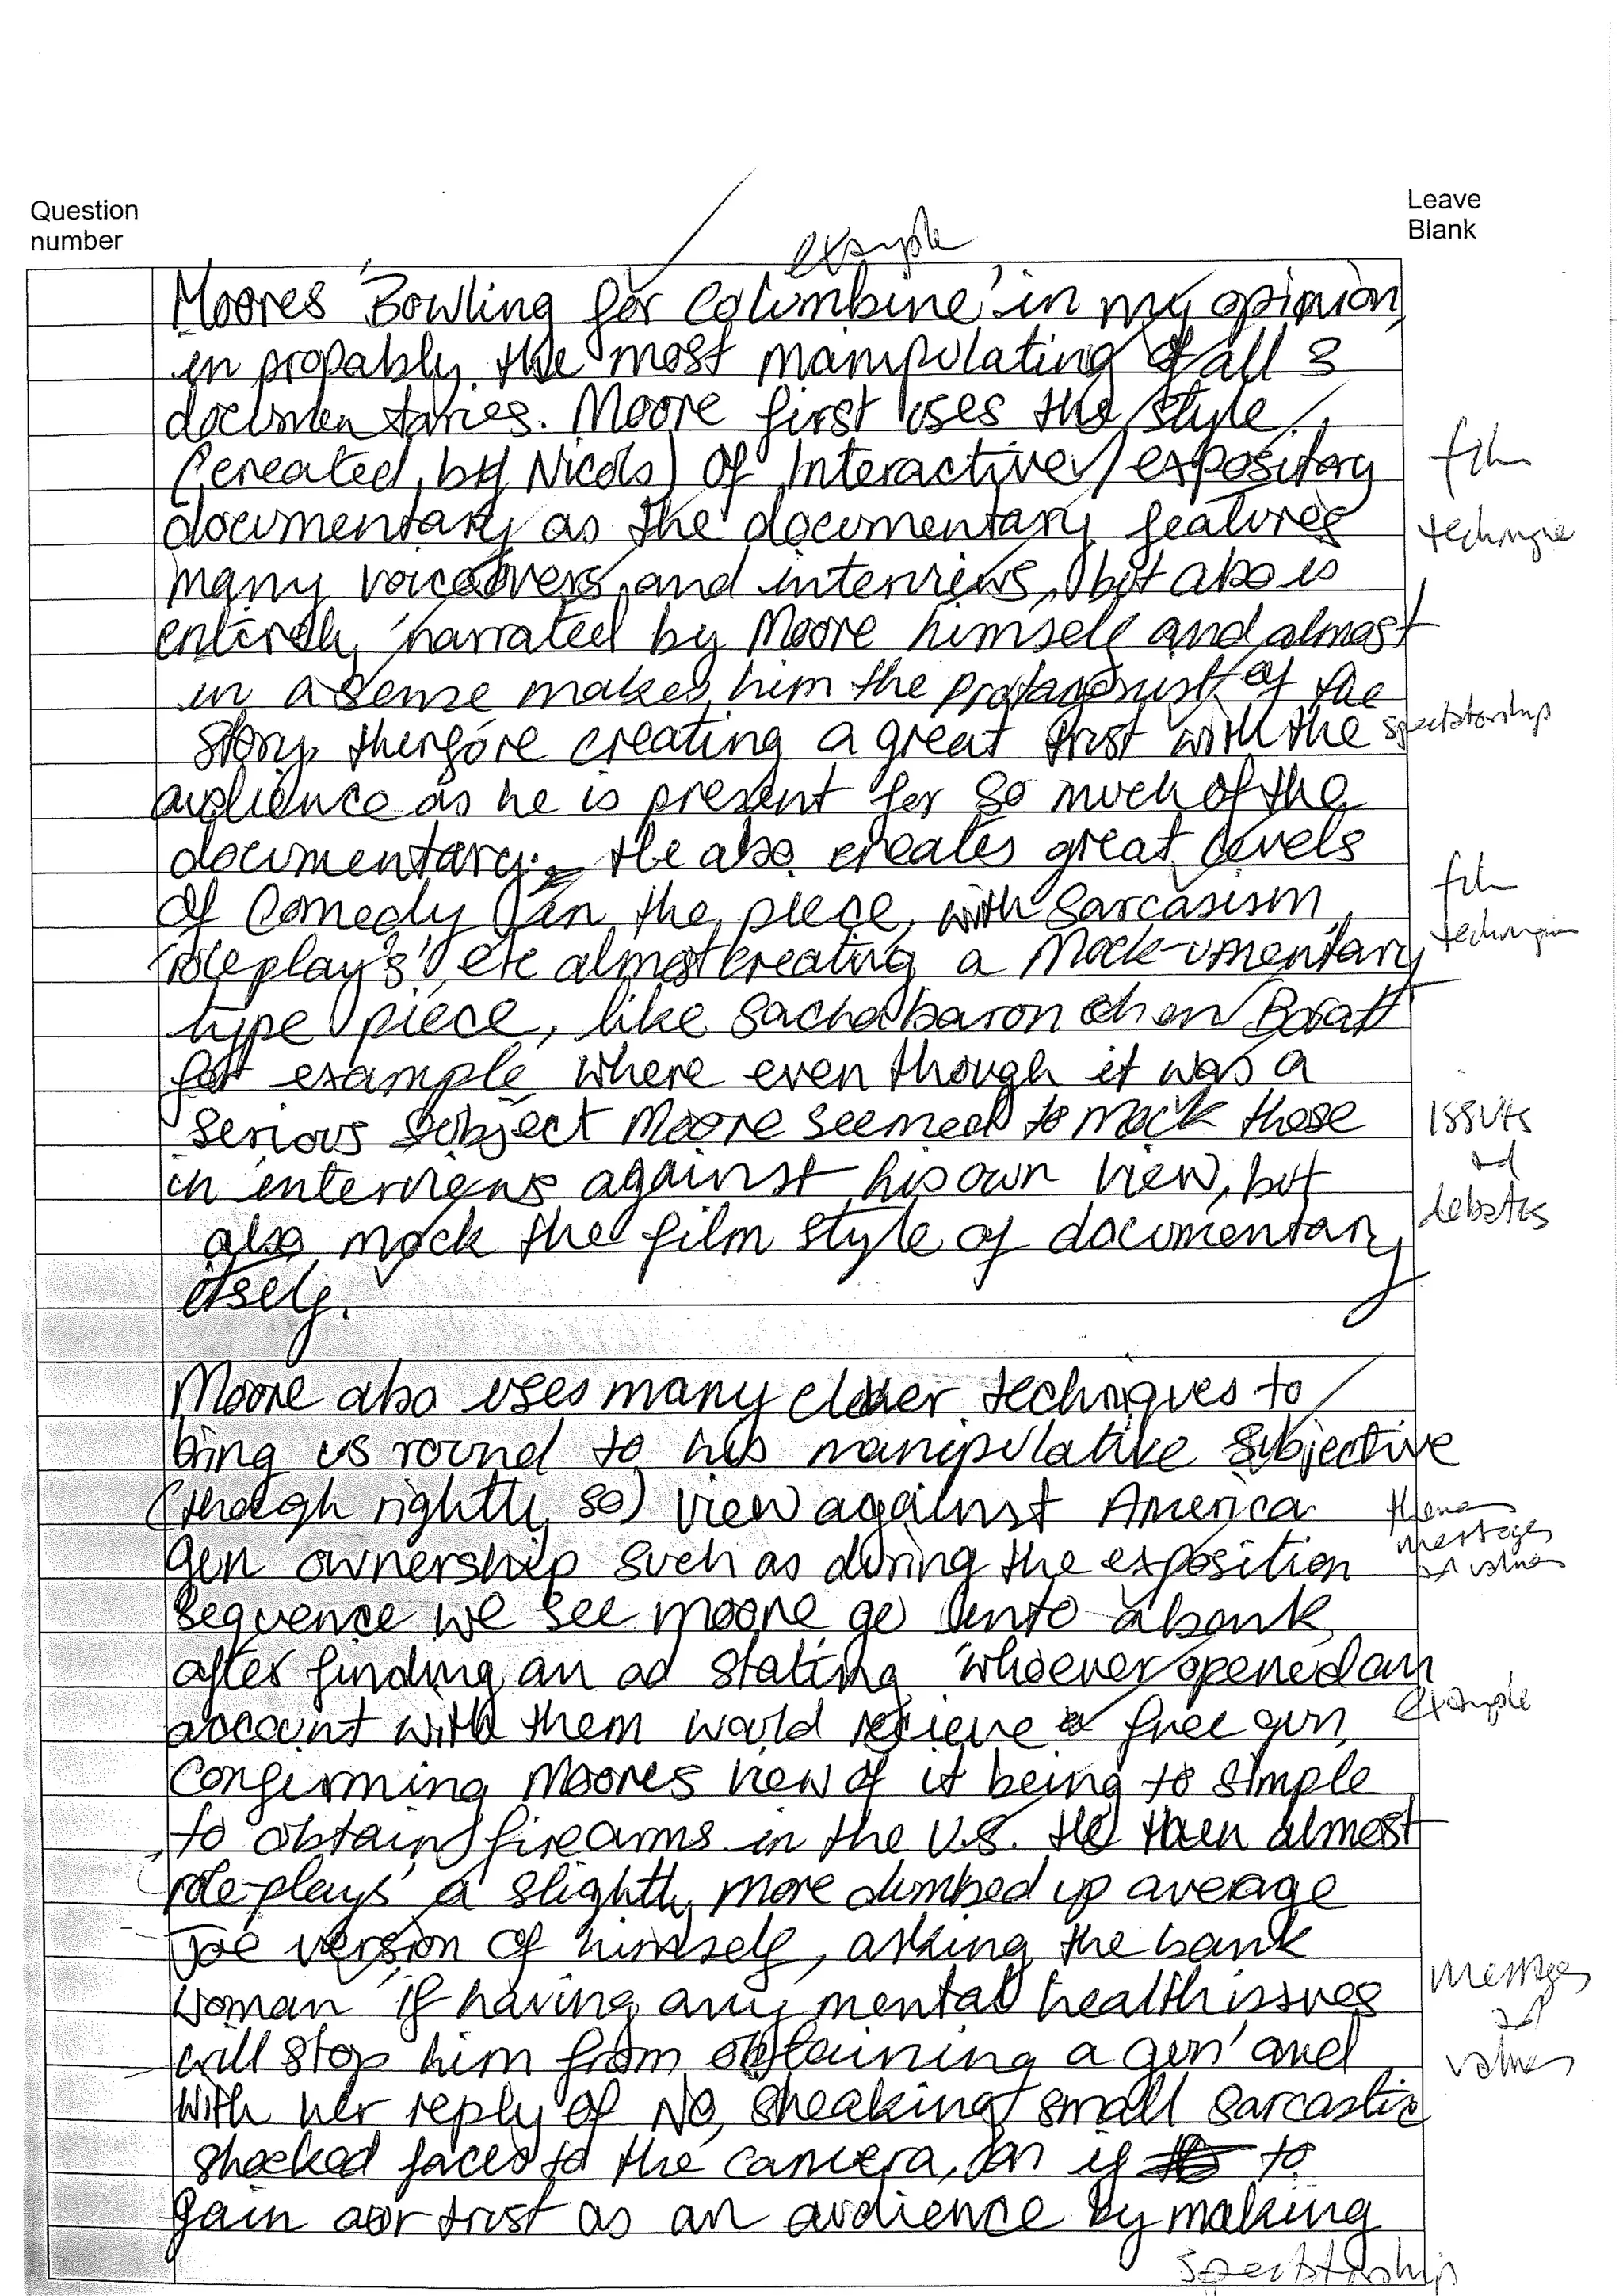 Question
number
Leave
Blank
example
Moores 'Bowling for Columbine' in my opinion,
in propably the most manipulating of all 3
documentaries. Moore first uses the style
(created by Nicols) of Interactive/expository
film
documentary as the documentary features
technique
many voiceovers and interviews, but also is
entirely narrated by Moore himself and almost
in a sense makes him the protagonist of the
story, therfore creating a great trust with the
spectatorship
audience as he is present for so much of the
documentary. He also creates great levels
film
of comedy in the piece, with sarcasism,
technique
'roleplay's' etc almost creating a Mock-umentary
type piece, like sacha baron chen Boratt
for example where even though it was a
serious subject Moore seemed to mock those
issues
and
in interviews against his own view, but
debates
also mock the film style of documentary
itself.
Moore also uses many clever techniques to
bring us round to his manipulative subjective
(though rightly so) view against America
theme
messages
gun ownership such as during the exposition
values
sequence we see moore go into a bank
after finding an ad stating 'whoever opened an
example
account with them would recieve a free gun,
Confirming Moores view of it being to simple
to obtain firearms in the U.S. He then almost
'role-plays' a slightly more dumbed up average
Joe version of himself, asking the bank
woman 'if having any mental health issues
messages
and
will stop him from obtaining a gun' and
values
with her reply of No, sneaking small sarcastic
shocked faces to the camera, as if to
gain our trust as an audience by making
spectatorship